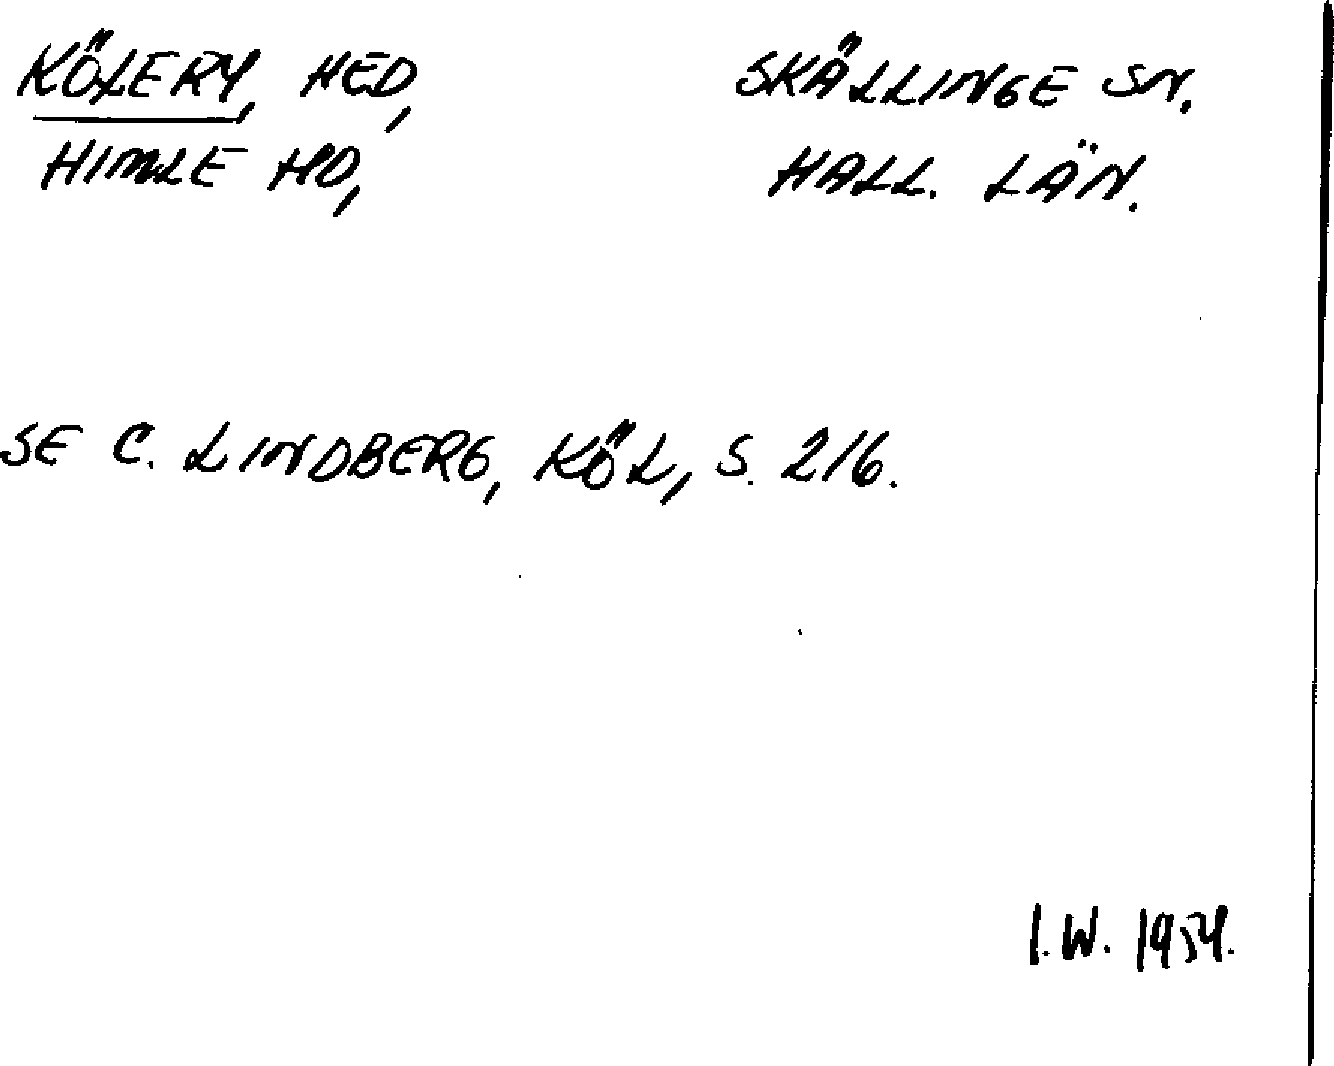 KÖLERY, HED, SKÄLLINGE SN.
HIMLE HD, HALL. LÄN.
SE C. LINDBERG, KÖL, S. 216.
I.W. 1954.